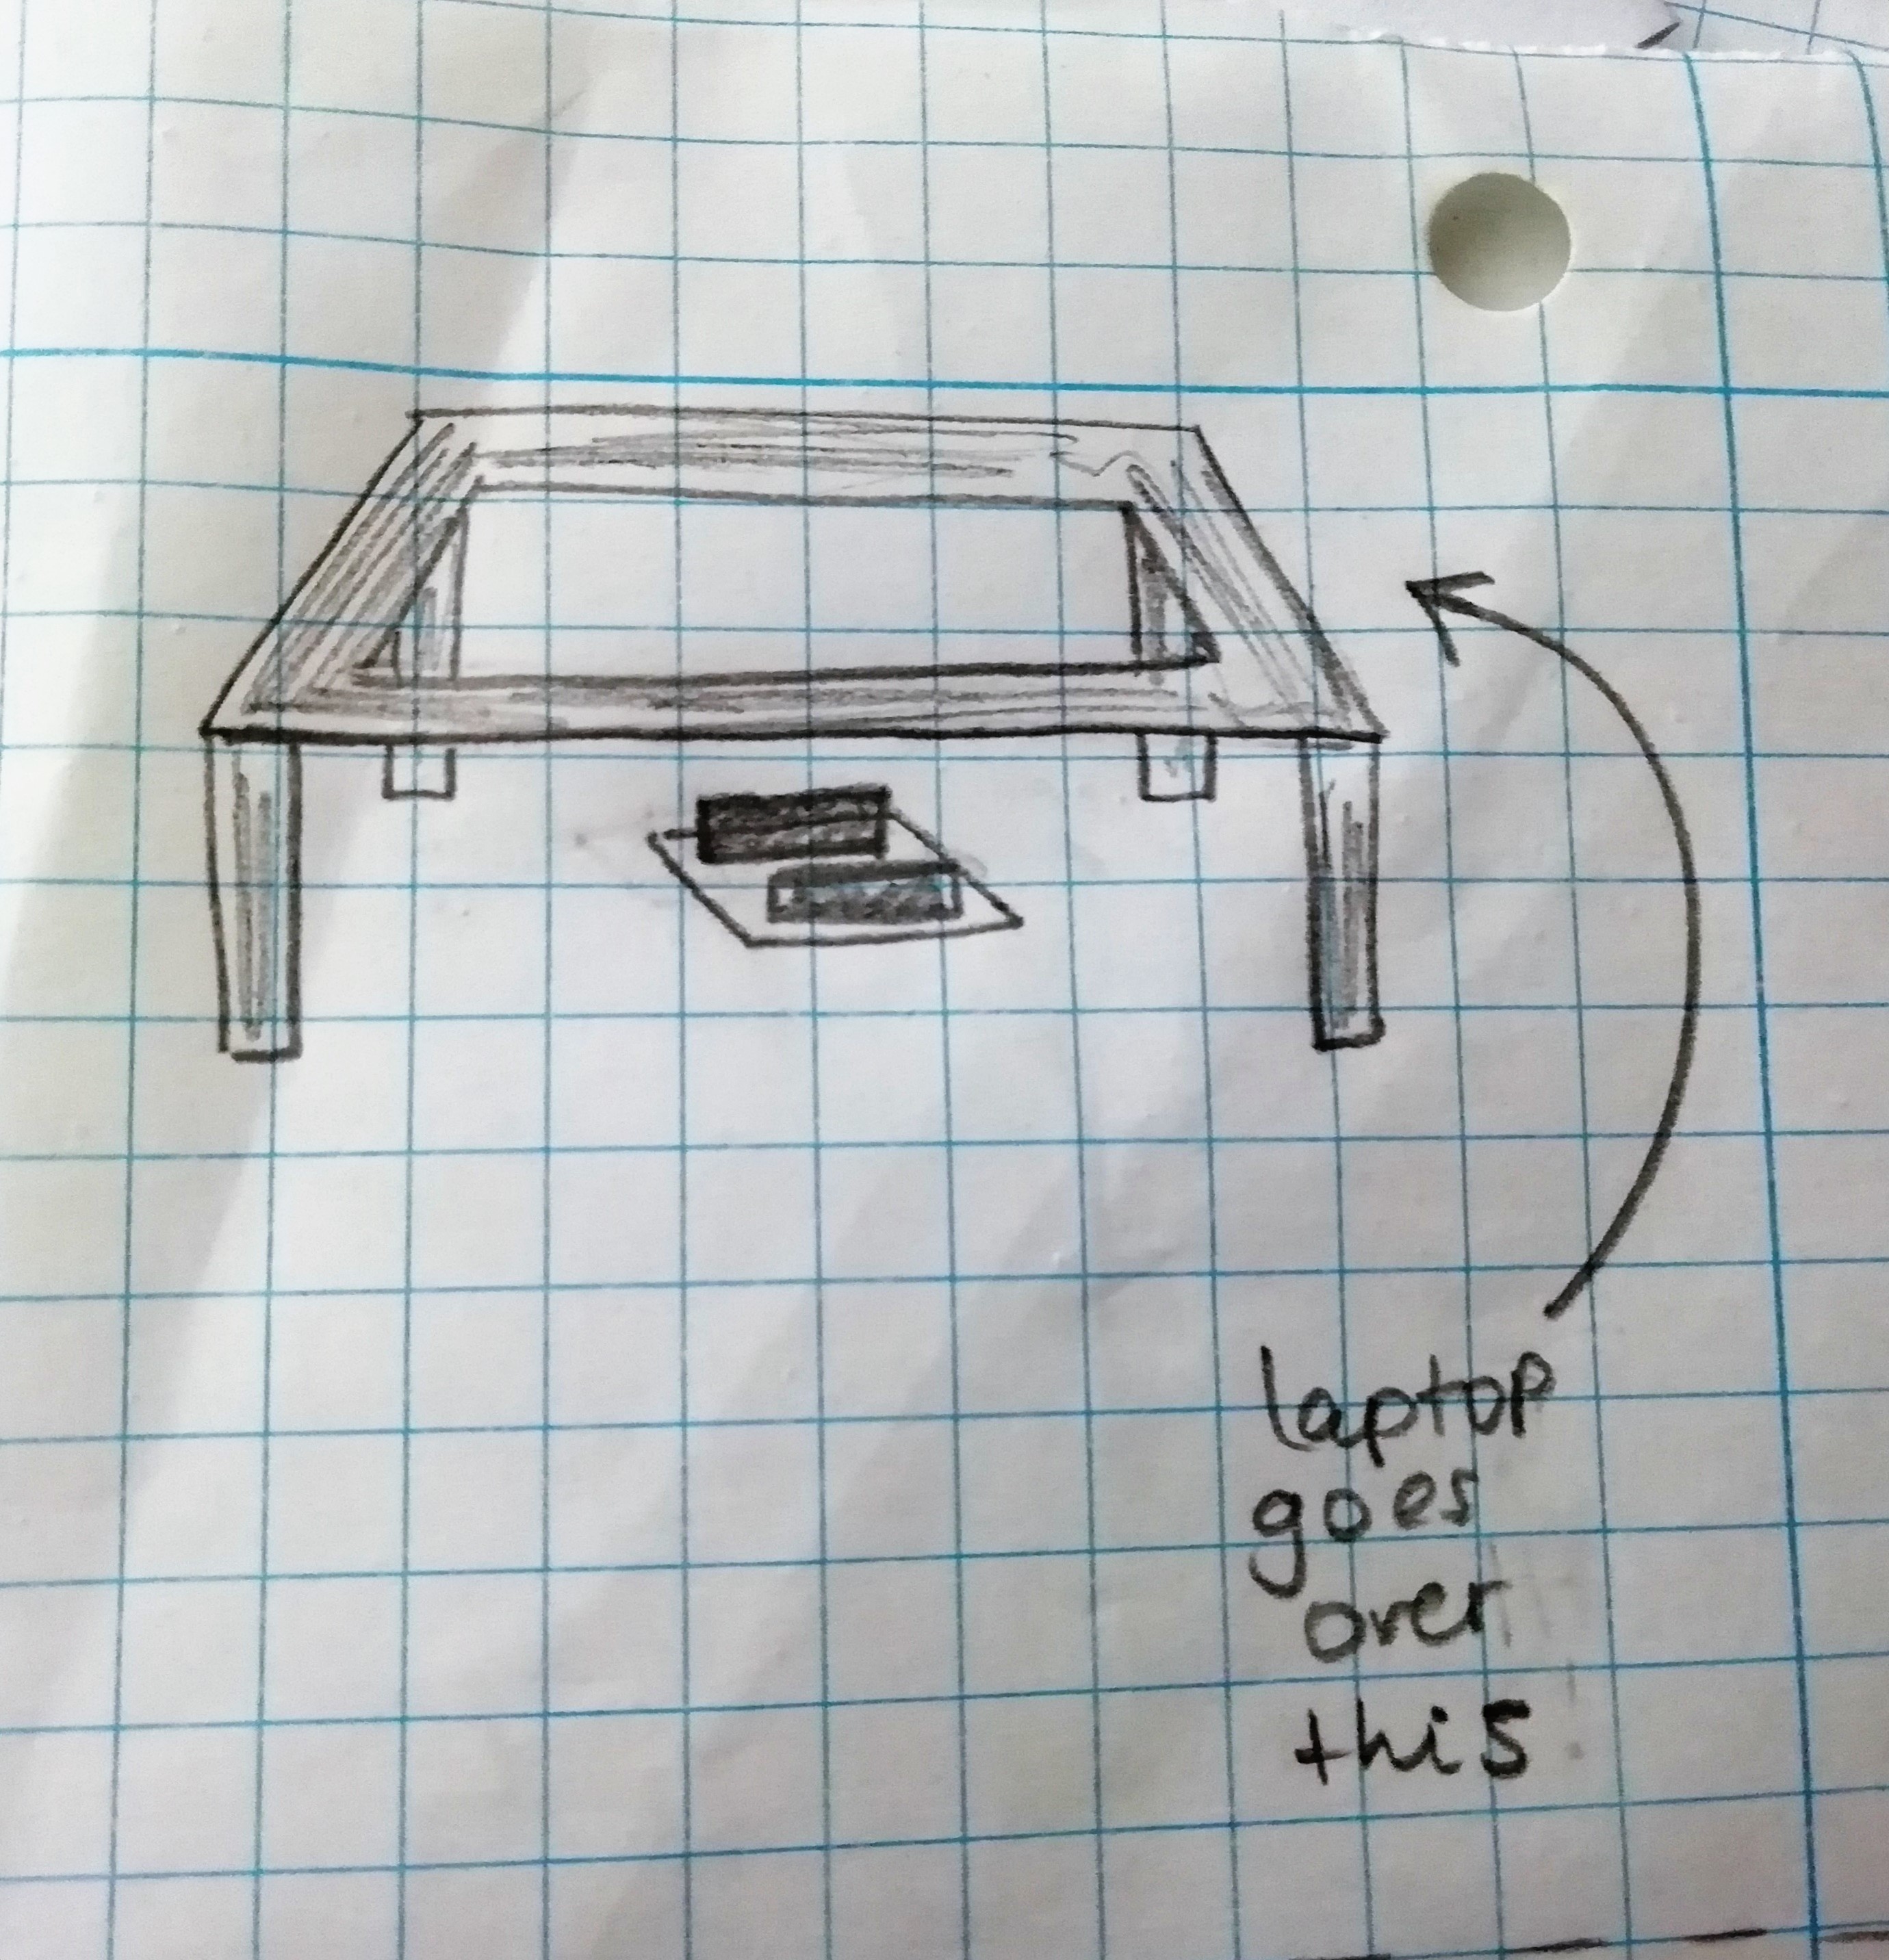 laptop
goes
over
this